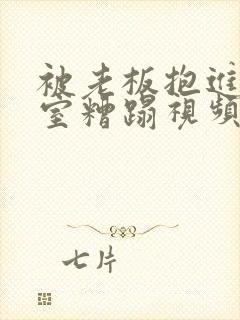 被老板抱進
室糟蹋視頻
七片